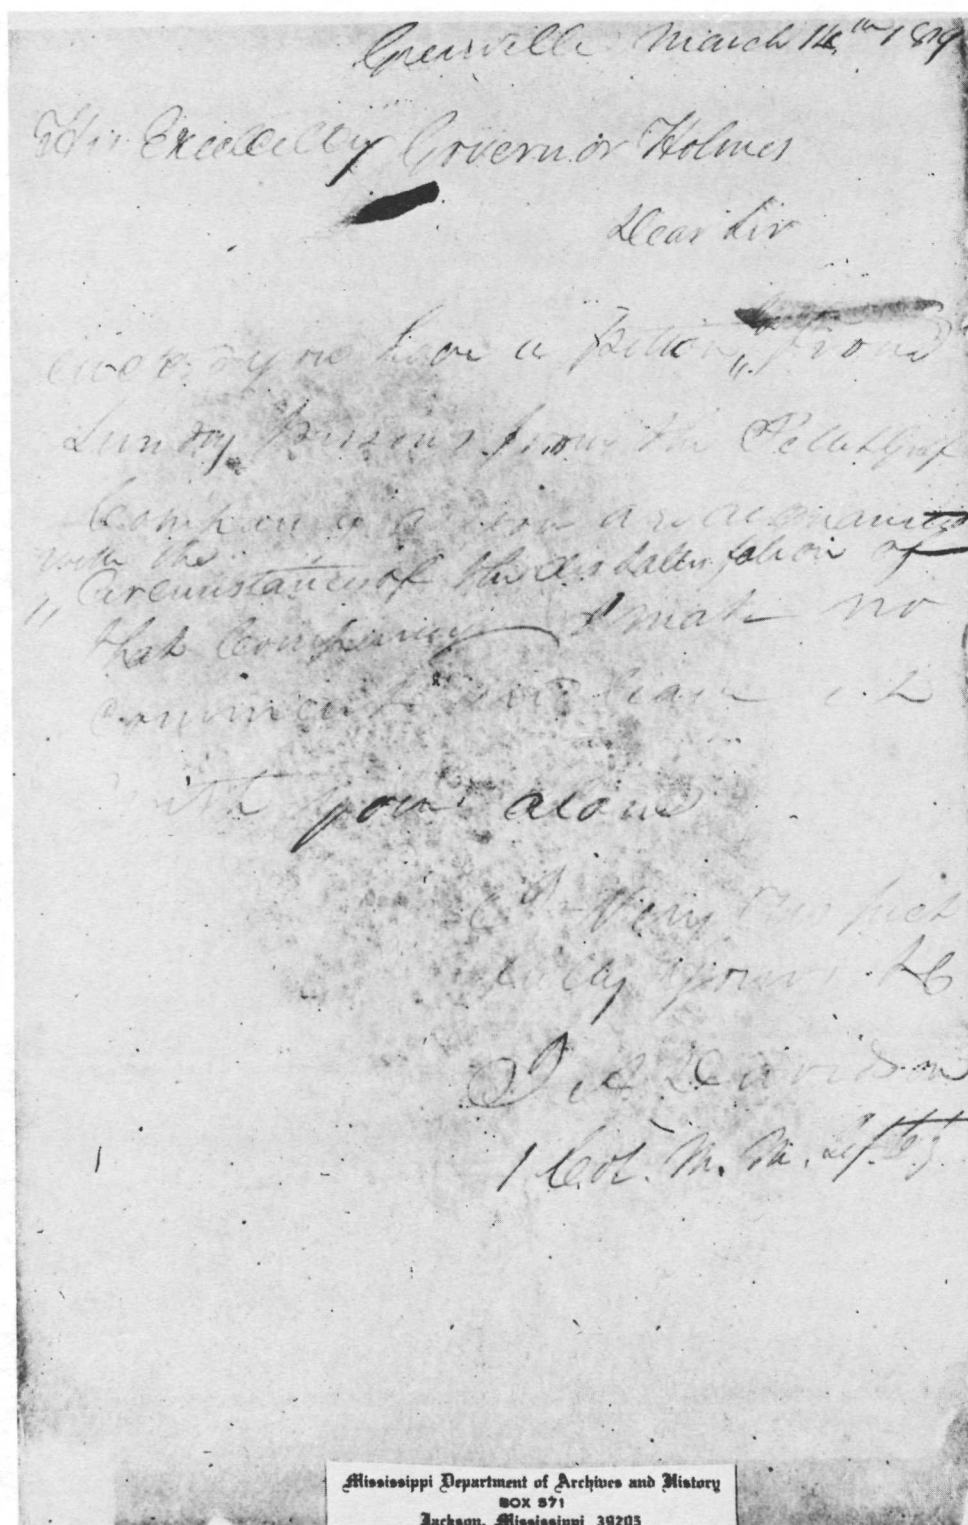 Greenville March 14th 1819
His Excellency Governor Holmes
Dear Sir
you have a petition from
Sundry persons from the
Company as you are acquainted
with the
Circumstances of the
that Company I make no
comment but leave it
with you alone
Very Respect
fully yours &c
Davidson
Col. M. M.
Mississippi Department of Archives and History
BOX 571
Jackson, Mississippi 39205